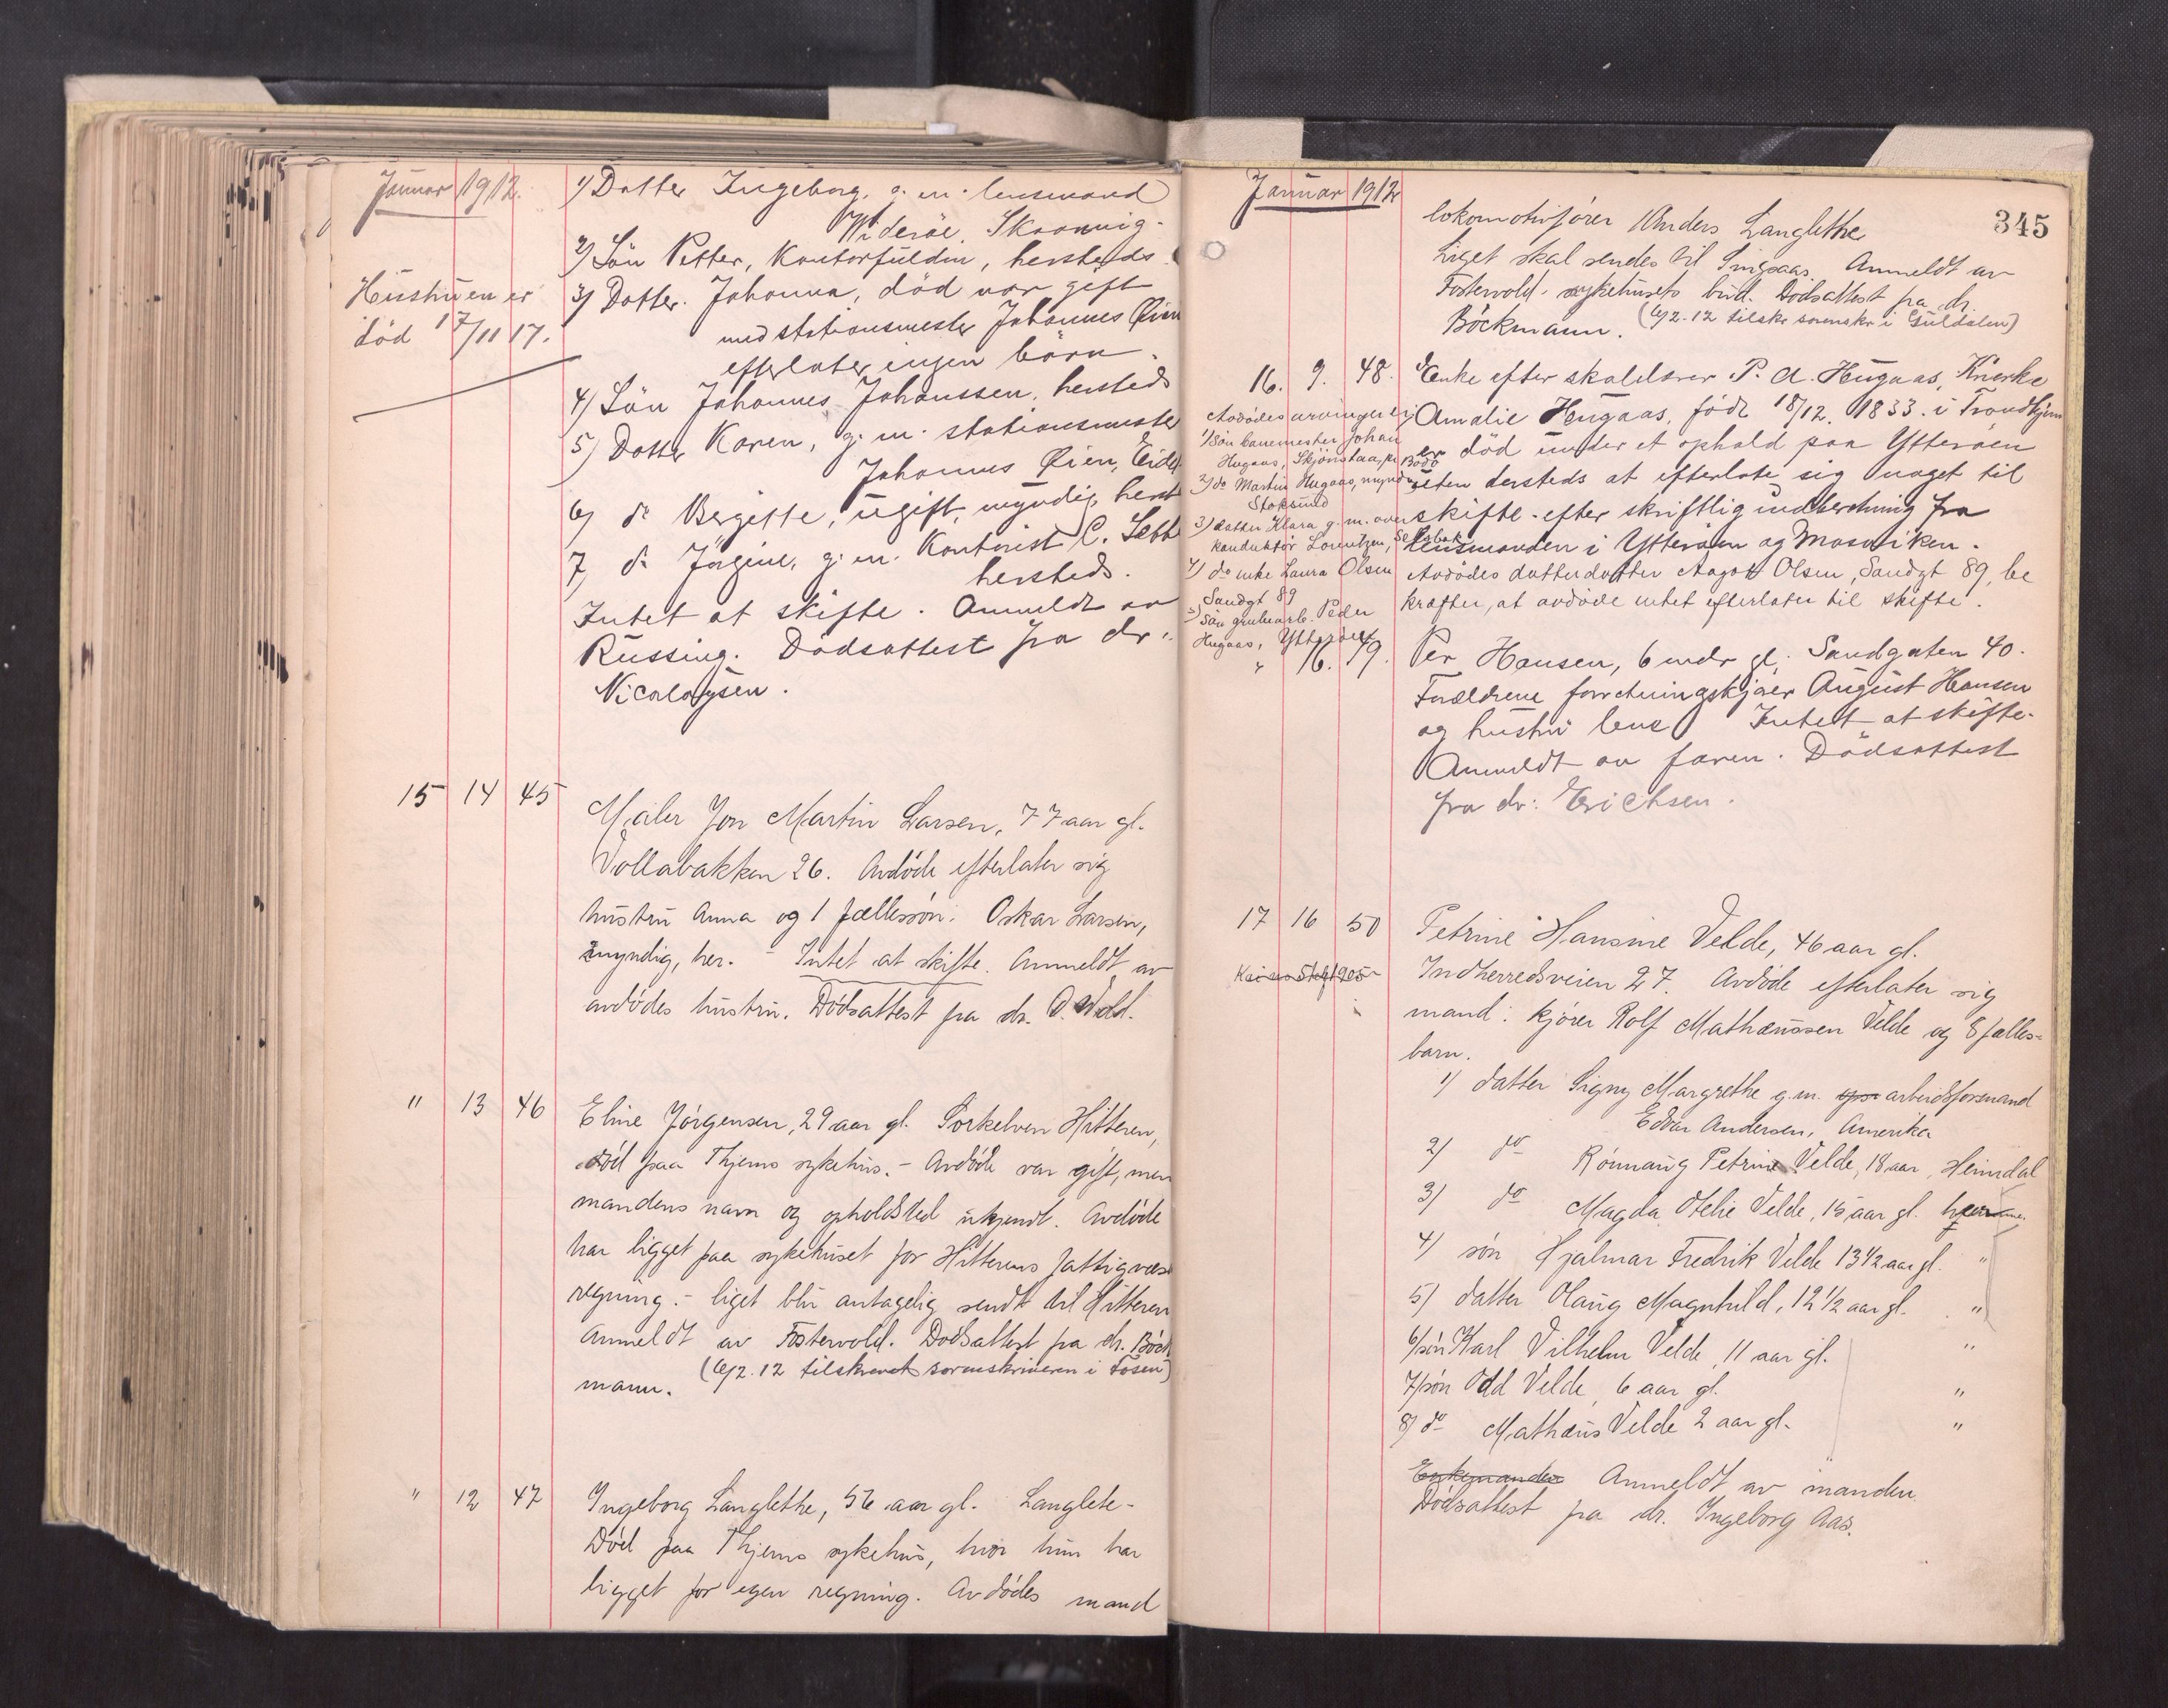 Januar 1912.
1) Datter Ingeborg, g. m. lensmand
Widerøe, Skaanvig.
2) Søn Petter, Kontorfuldm, hersteds
3) Datter Johanna, død var gift
med stationsmester Johannes Øien
efterlater ingen børn.
4) Søn Johannes Johanssen, hersteds
5) Datter Karen, g. m. stationsmester
Johannes Øien, Eids
6) do Bergitte, ugift, myndig, herst
7) do Jørgine, g. m. Kontorist C. Sæth
hersteds.
Intet at skifte. Anmeldt av
Russing. Dødsattest fra dr.
Nicolaysen.
Hustruen er
død 17/11 17.
15 14 45
Maler Jon Martin Larsen, 77 aar gl.
Vollabakken 26. Avdøde efterlater sig
hustru Anna og 1 fællessøn: Oskar Larsen,
myndig, her. - Intet at skifte. Anmeldt av
avdødes hustru. Dødsattest fra dr. O. Wold.
" 13 46
Eline Jørgensen, 29 aar gl. Sorkelven Hitteren,
død paa Thjems sykehus. - Avdøde var gift, men
mandens navn og opholdsted ukjendt. Avdøde
har ligget paa sykehuset for Hitterens fattigvæs
regning. - Liget blir antagelig sendt til Hitteren
Anmeldt av Fostervold. Dødsattest fra dr. Böck
mann. (6/2.12 tilskrevet sorenskriveren i Fosen)
" 12 47
Ingeborg Langlethe, 56 aar gl. Langlete-
Død paa Thjems sykehus, hvor hun har
ligget for egen regning. Avdødes mand
Januar 1912
345
lokomotivfører Anders Langlethe
Liget skal sendes til Singsaas. Anmeldt av
Fostervold. sykehusets bud. Dødsattest fra dr.
Böckmann. (6/2.12 tilskr sorenskr i Guldalen)
16. 9. 48.
Enke efter skolelærer P. A. Hugaas, Kneske
Amalie Hugaas, født 18/12. 1833. i Trondhjem
er død under et ophold paa Ytterøen
uten dersteds at efterlate sig noget til
skifte. efter skriftlig indberetning fra
lensmanden i Ytterøen og Mosviken.
Avdødes datterdatter Aagot Olsen, Sandgt 89, be
kræfter, at avdøde intet efterlater til skifte.
Avdødes arvinger er:
1) Søn banemester Johan
Hugaas, Skjønstaa, pr Bodø
2) do Martin Hugaas, myndig
Stoksund
3) datter Klara g. m. over
konduktør Lorentzen, Selsbak
4) do enke Laura Olsen
Sandgt 89
5) Søn grubearb. Peder
Hugaas, Ytterøen
" 16. 49.
Per Hansen, 6 mdr gl. Sandgaten 40.
Forældrene forretningskjører August Hansen
og hustru Lene Intet at skifte.
Anmeldt av faren. Dødsattest
fra dr. Erichsen.
17 16 50
Petrine Hansine Velde, 46 aar gl.
Indherredsveien 27. Avdøde efterlater sig
mand: kjører Rolf Mathæussen Velde og 8 fælles-
barn.
1) datter Signy Margrethe g. m. arbeidsformand
Edvar Andersen, Amerika
2) do Rønnaug Petrine Velde, 18 aar, Heimdal
3) do Magda Otelie Velde, 15 aar gl. hjemme.
4) søn Hjalmar Fredrik Velde 13 1/2 aar gl. "
5) datter Olaug Magnhild, 12 1/2 aar gl. "
6) søn Karl Vilhelm Velde, 11 aar gl. "
7) søn Odd Velde, 6 aar gl. "
8) do Mathæus Velde 2 aar gl. "
Enkemanden Anmeldt av manden.
Dødsattest fra dr. Ingeborg Aas.